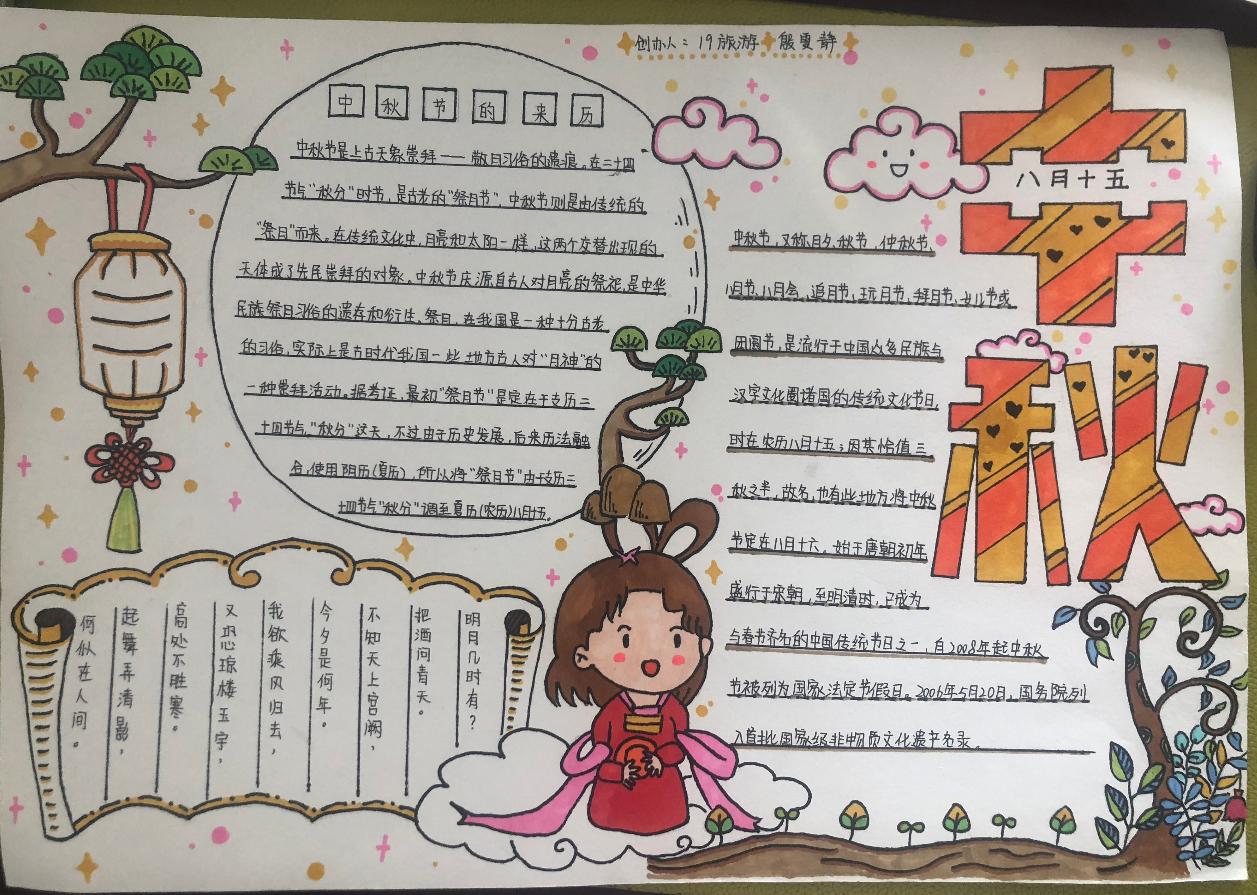 创办人：19旅游 殷雯静
中秋节的来历
中秋节是上古天象崇拜——敬月习俗的遗痕。在二十四
节气“秋分”时节，是古老的“祭月节”，中秋节则是由传统的
“祭月”而来。在传统文化中，月亮和太阳一样，这两个交替出现的
天体成了先民崇拜的对象。中秋节庆源自古人对月亮的祭祀，是中华
民族祭月习俗的遗存和衍生。祭月，在我国是一种十分古老
的习俗，实际上是古时代我国一些地方古人对“月神”的
一种崇拜活动。据考证，最初“祭月节”是定在干支历二
十四节气“秋分”这天，不过由于历史发展，后来历法融
合，使用阴历(夏历)，所以将“祭月节”由干支历二
十四节气“秋分”调至夏历(农历)八月十五。
八月十五
秋
中秋节，又称月夕，秋节，仲秋节，
八月节，八月会，追月节，玩月节，拜月节，女儿节或
团圆节，是流行于中国众多民族与
汉字文化圈诸国的传统文化节日，
时在农历八月十五；因其恰值三
秋之半，故名，也有些地方将中秋
节定在八月十六。始于唐朝初年
盛行于宋朝，至明清时，已成为
与春节齐名的中国传统节日之一，自2008年起中秋
节被列为国家法定节假日。2006年5月20日，国务院列
入首批国家级非物质文化遗产名录。
明月几时有？
把酒问青天。
不知天上宫阙，
今夕是何年。
我欲乘风归去，
又恐琼楼玉宇，
高处不胜寒。
起舞弄清影，
何似在人间。